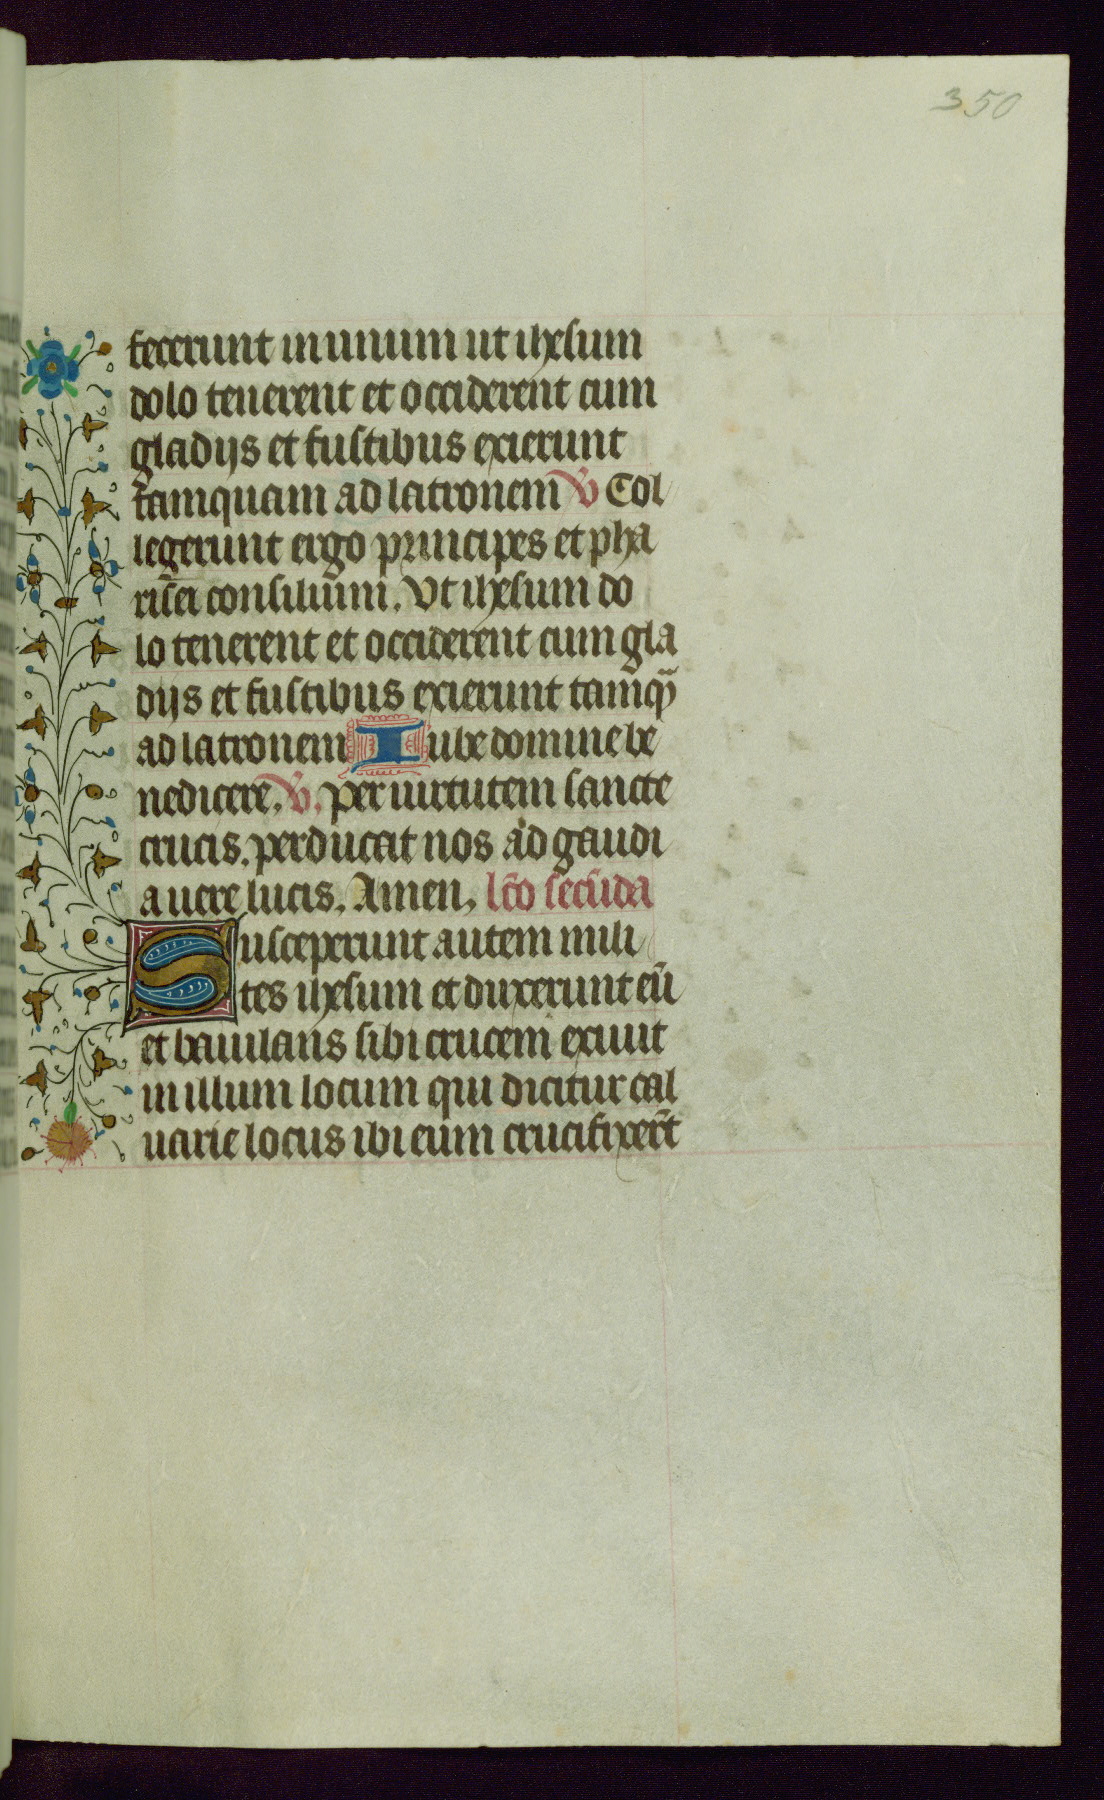 350
fecerunt in unum ut ihesum
dolo tenerent et occiderent cum
gladijs et fustibus exierunt
tamquam ad latronem ℣ Col
legerunt ergo principes et pha
risei consilium. Vt ihesum do
lo tenerent et occiderent cum gla
dijs et fustibus exierunt tamqꝫ
ad latronem Iube domine be
nedicere. ℣. per uirtutem sancte
crucis. perducat nos ad gaudi
a uere lucis. Amen. lc̄o secūda
Susceperunt autem mili
tes ihesum et duxerunt eū
et baiulans sibi crucem exiuit
in illum locum qui dicitur cal
uarie locus ibi eum crucifixer̄t